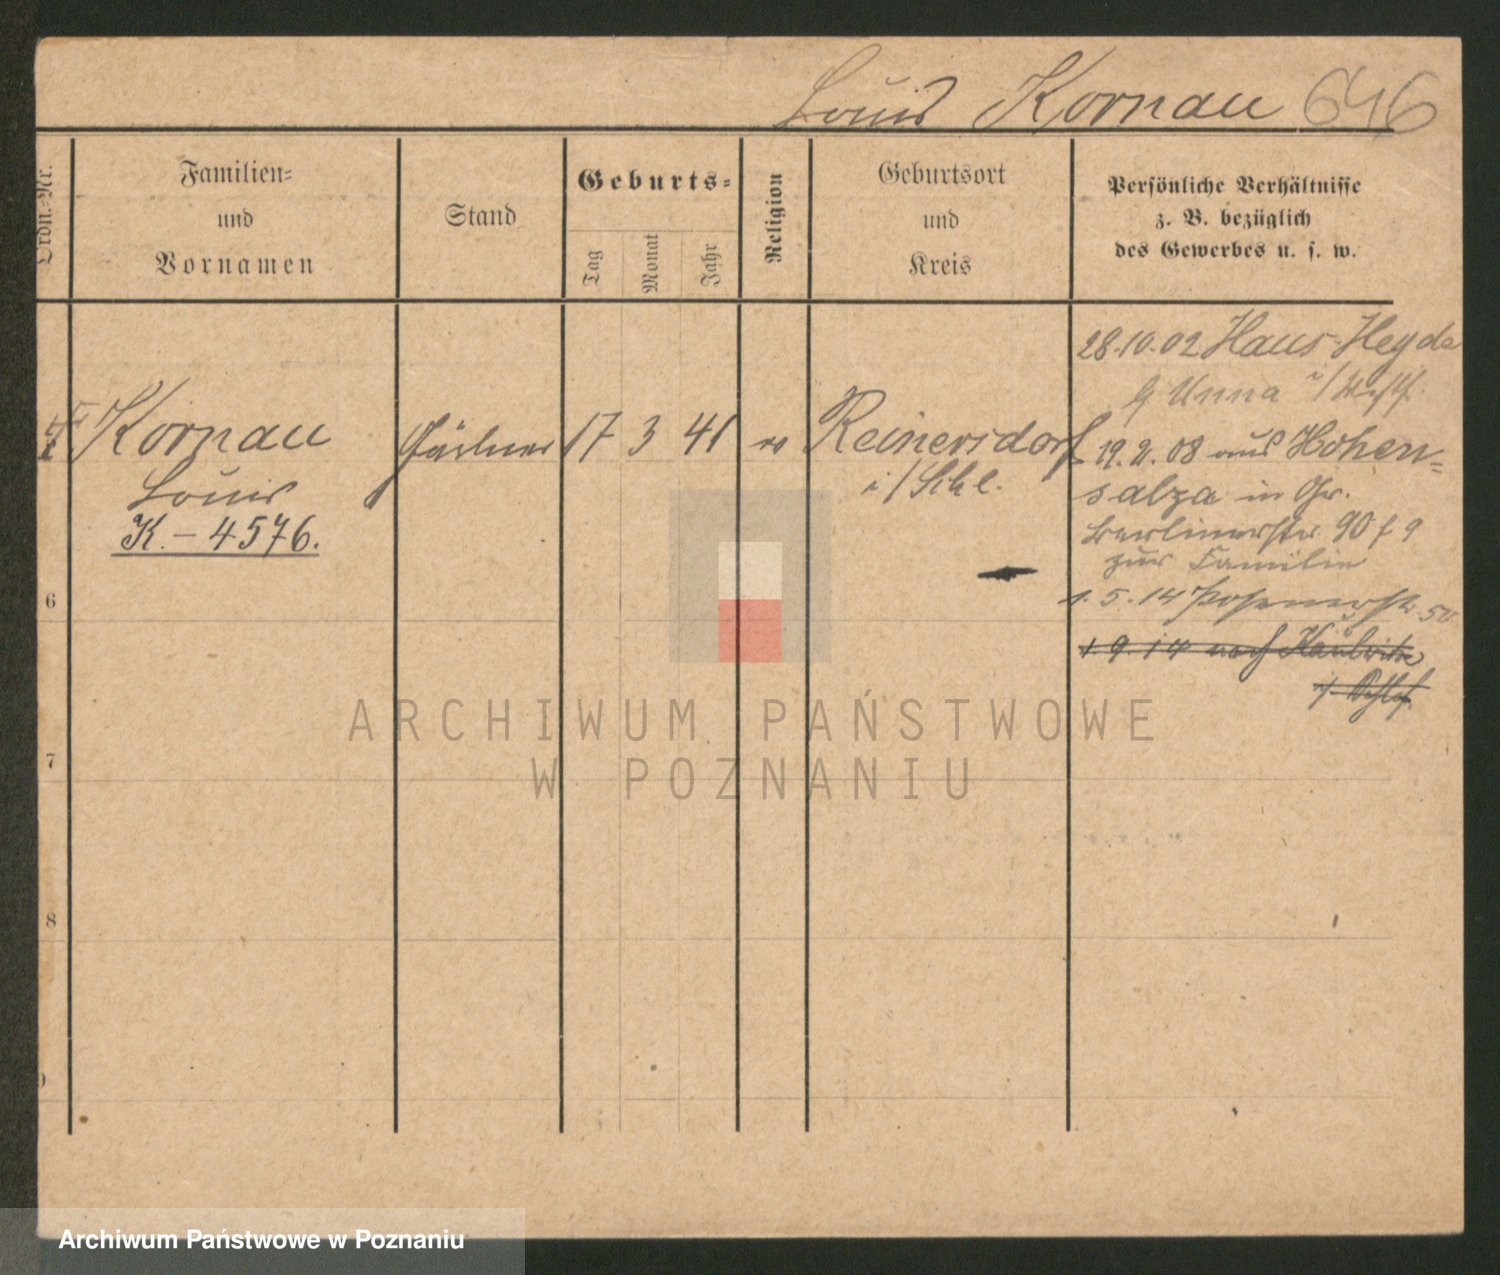 Louis Kornau 646
Ordn.-Nr.
Familien-
und
Vornamen
Stand
Geburts-
Tag
Monat
Jahr
Religion
Geburtsort
und
Kreis
Persönliche Verhältnisse
z. B. bezüglich
des Gewerbes u. s. w.
Kornau
Louis
K. - 4576.
Gärtner
17 3 41
Reinersdorf
i/Schl.
28.10.02 Haus-Heyde
Unna i/Westf.
08 aus Hohen-
salza in Gr.
Berlinerstr. 90 f 9
zur Familie
1.5.14 Posenerstr. 50
1.9.14 nach
6
7
8
ARCHIWUM PAŃSTWOWE
W POZNANIU
Archiwum Państwowe w Poznaniu